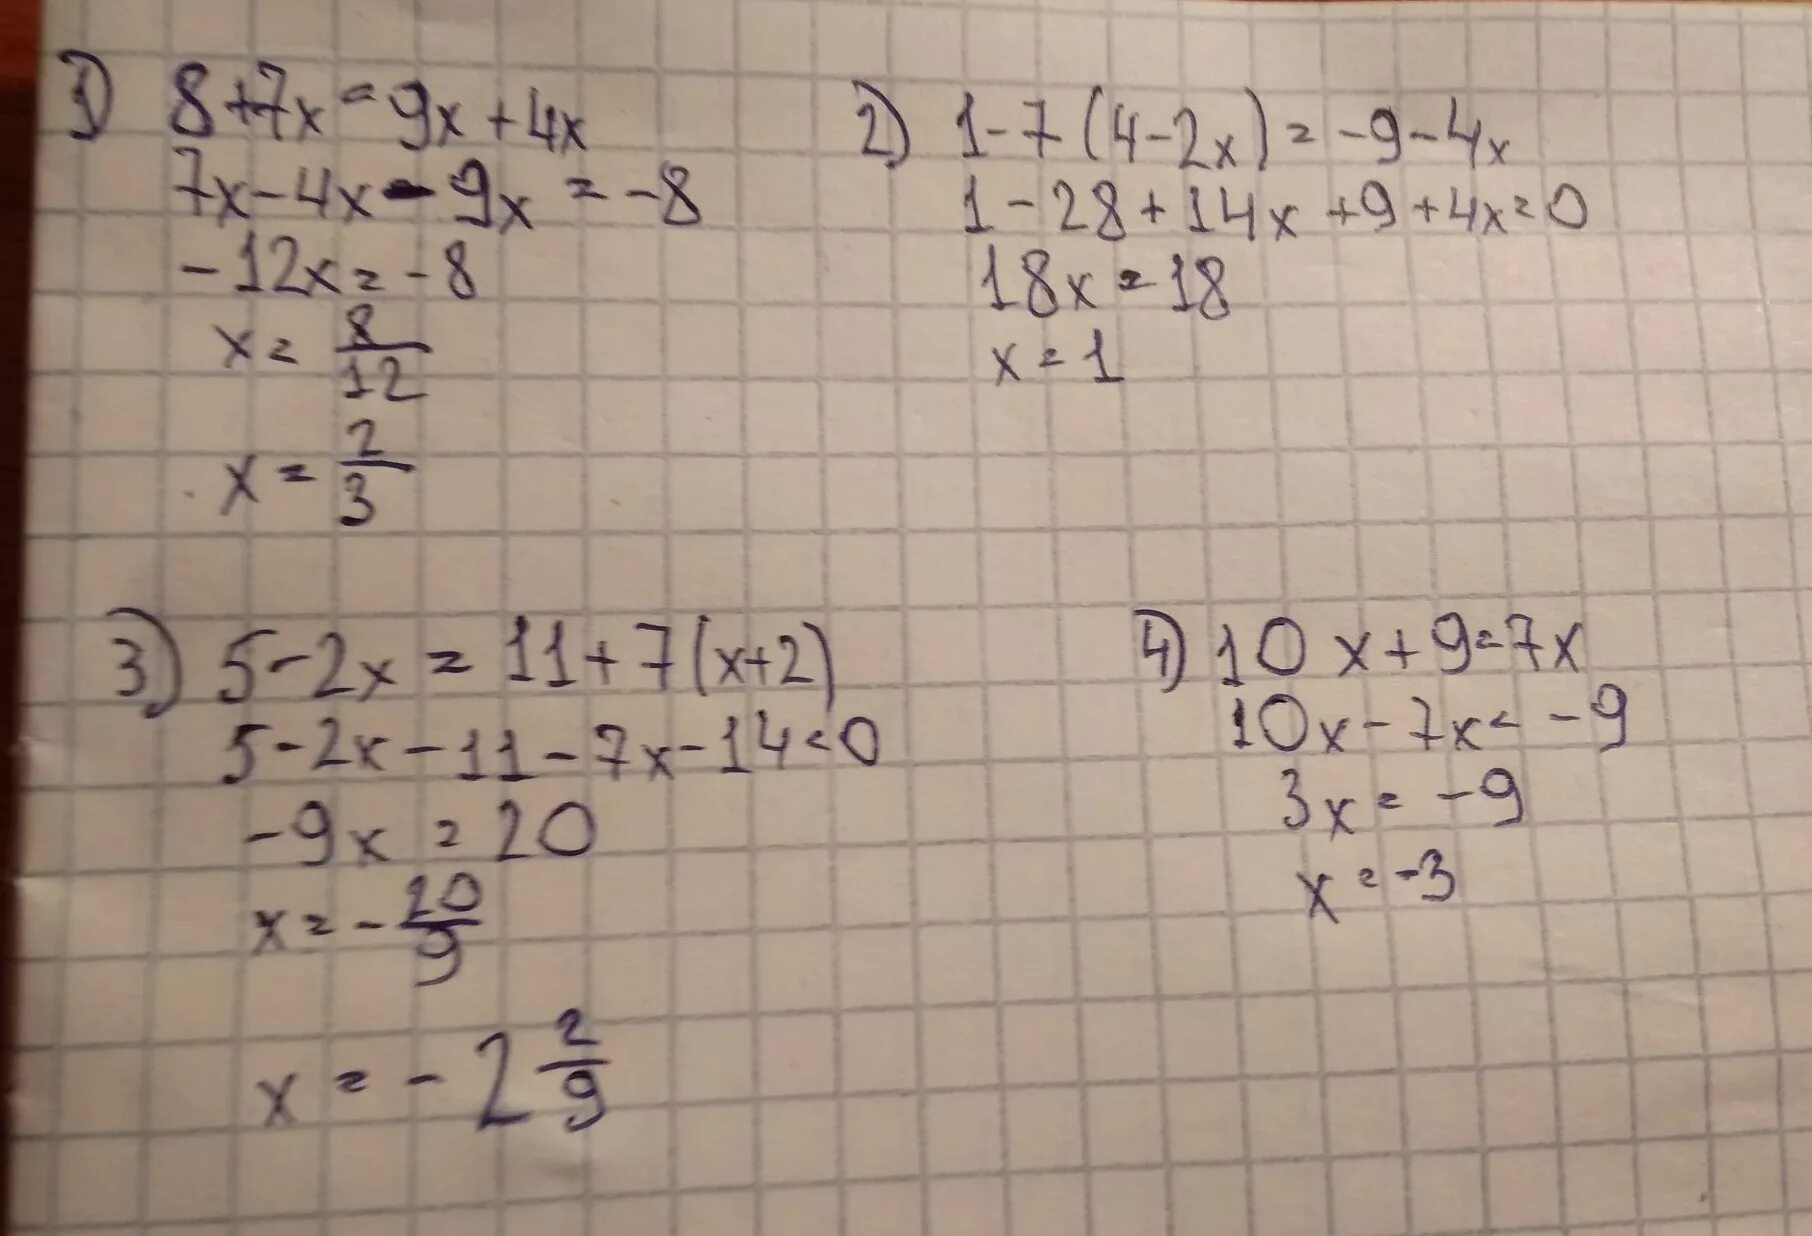 1) 8+7x=9x+4x
7x-4x-9x=-8
-12x=-8
x=8/12
x=2/3
2) 1-7(4-2x)=-9-4x
1-28+14x+9+4x=0
18x=18
x=1
3) 5-2x=11+7(x+2)
5-2x-11-7x-14=0
-9x=20
x=-20/9
x=-2 2/9
4) 10x+9=7x
10x-7x=-9
3x=-9
x=-3